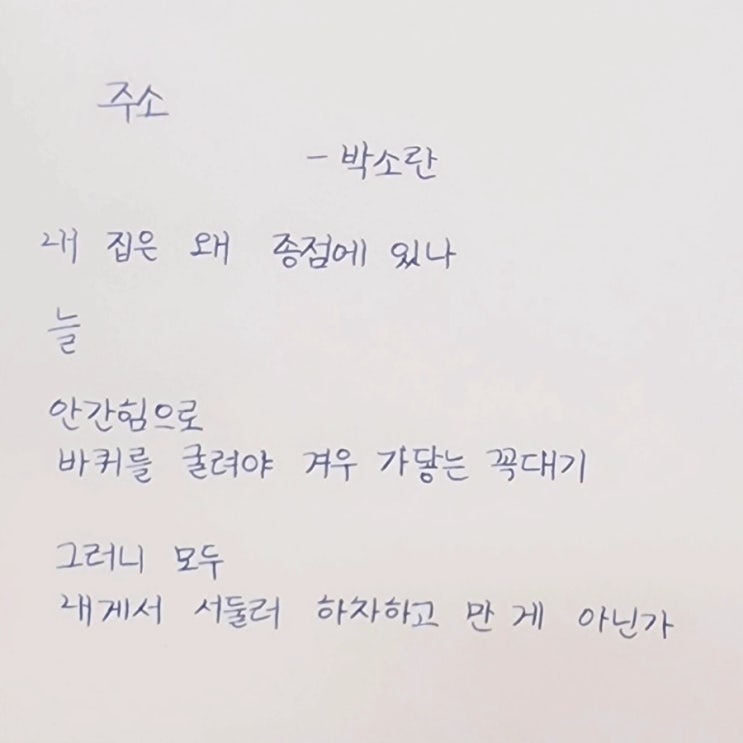 주소
- 박소란
내 집은 왜 종점에 있나
늘
안간힘으로
바퀴를 굴려야 겨우 가닿는 꼭대기
그러니 모두
내게서 서둘러 하차하고 만 게 아닌가